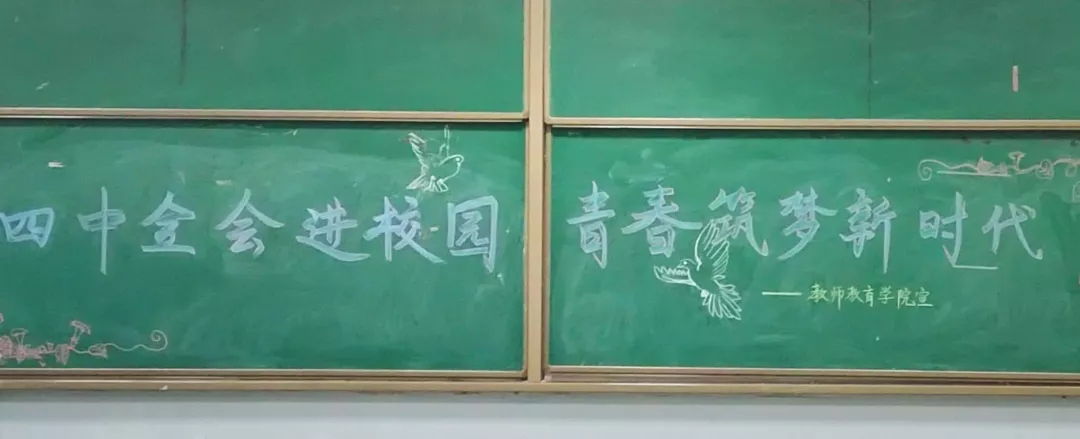 四中全会进校园 青春筑梦新时代
——教师教育学院宣